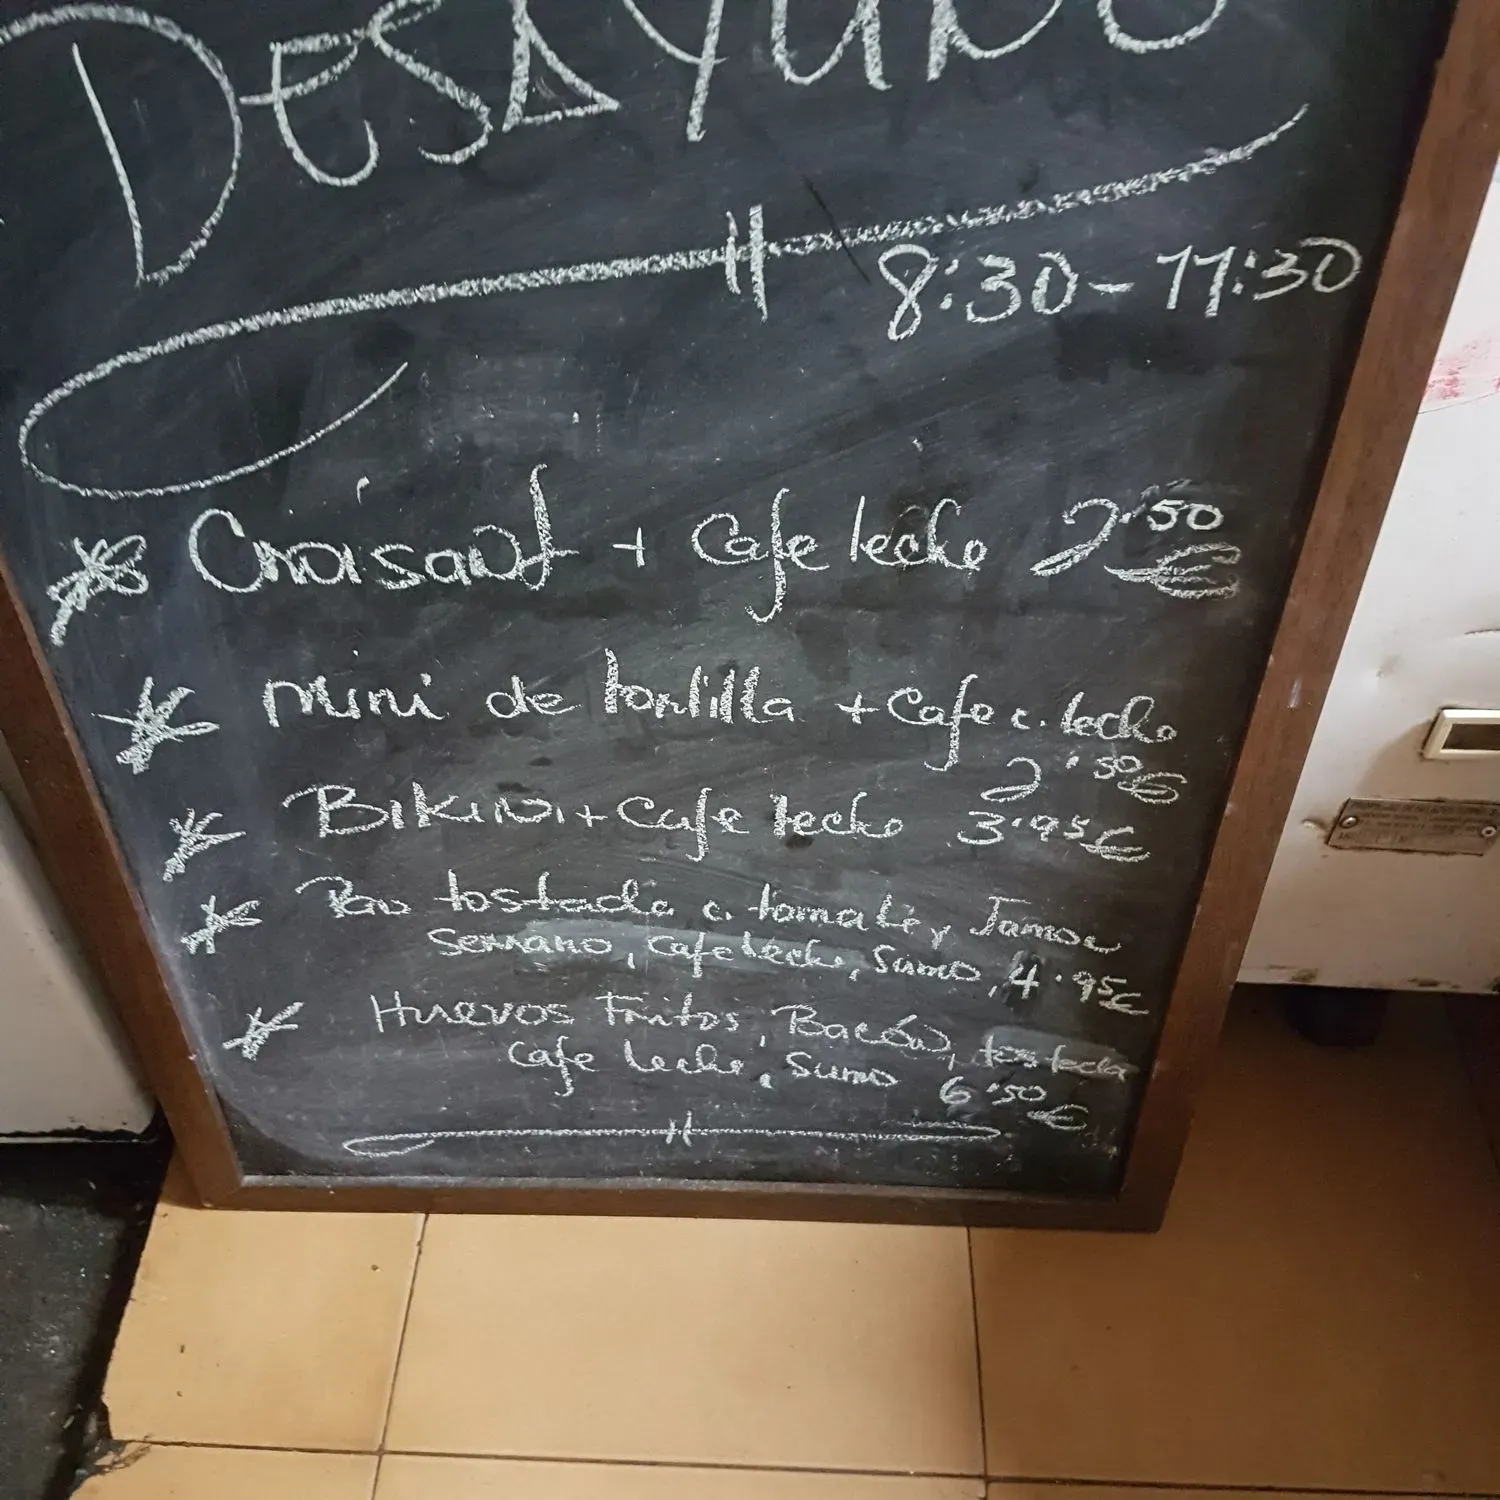 DESAYUNO
8:30 - 11:30
Croisant + Cafe leche 2'50 €
mini de tortilla + Cafe c. leche
2'50 €
BIKINI + Cafe leche 3'95 €
Pan tostada c. tomate y Jamon
Serrano, cafe leche, Sumo, 4.95 €
Huevos Fritos, Bacón, tostada
Cafe leche, Sumo 6'50
€